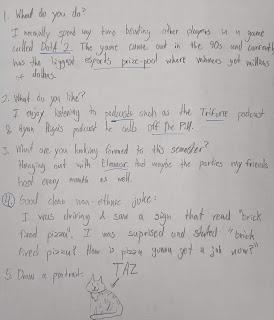 1. What do you do?
I normally spend my time beating other players in a game
called DotA 2. The game came out in the 90s and currently
has the biggest esports prize-pool where winners get millions
of dollars.
2. What do you like?
I enjoy listening to podcasts such as the Triforce podcast
& Ryan podcast he calls Off the Pill.
3. What are you looking forward to this semester?
Hanging out with Eleanor. And maybe the parties my friends
host every month as well.
4. Good clean non-ethnic joke:
I was driving & saw a sign that read "brick
fired pizza". I was suprised and stated "brick
fired pizza? How is pizza gonna get a job now?"
5. Draw a portrait:
TAZ